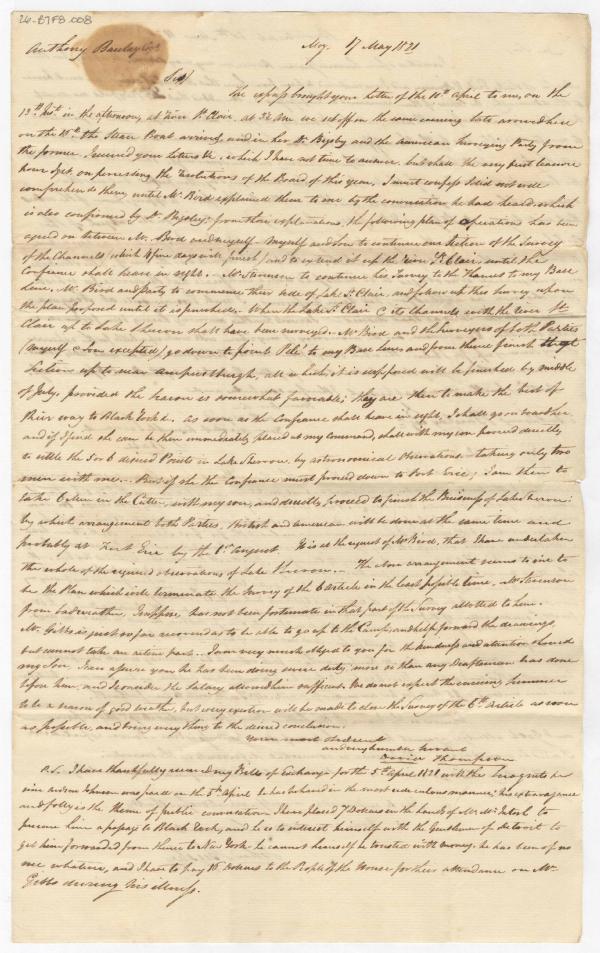 24-B7F8.008
Anthony Barclay Esqr Moy 17 May 1821
Sir
The express brought your Letter of the 11th April to me, on the
13th Inst. in the afternoon, at River St. Clair, at 3½ AM we set off on the same evening late arrived here
on the 15th the Steam Boat arrived, and in her Dr. Bigsby and the American Surveying Party from
the former I received your Letters &c. which I have not time to answer but shall the very first leasure
hour I get on perusing the Resolutions of the Board of this year, I must confess I did not well
comprehend them, until Mr. Bird explained them to me by the conversation he had heard, which
is also confirmed by Dr. Bigsby; from their explanations, the following plan of operations has been
agreed on between Mr. Bird and myself – Myself and Son to continue our Section of the Survey
of the Channels, which a few days will finish, and to extend it up the River St. Clair, until the
Confiance shall heave in sight. – Mr. Stevenson to continue his Survey to the Thames to my Base
Line. Mr. Bird and Party to commence their side of Lake St. Clair, and follow up this Survey upon
the plan proposed until it is finished. When the Lake St. Clair & its Channels with the River St.
Clair up to Lake Huron shall have been surveyed. Mr Bird and the Surveyors of both Parties
(myself & Son excepted) go down to point Pelé to my Base Lines and from thence finish that
Section up to near Amherstburgh, all which, it is supposed will be finished by middle
of July, provided the Season is somewhat favorable; they are then to make the best of
their way to Black Rock. As soon as the Confiance shall heave in sight, I shall go on board her
and if I find she can be then immediately placed at my command, shall with my son proceed directly
to settle the 5 or 6 desired Points in Lake Huron, by astronomical Observations – taking only two
men with me.. But if she the Confiance must proceed down to Fort Erie; I am then to
take 6 Men in the Cutter, with my son, and directly proceed to finish the Business of Lake Huron:
by which arrangement both Parties, British and American will be done at the same time and
probably at Fort Erie by the 1st August. It is at the request of Mr Bird, that I have undertaken
the whole of the required observations of Lake Huron – The above arrangement seems to me to
be the Plan which will terminate the Survey of the 6 Article in the least possible time, Mr Stevenson
from bad weather, I suppose has not been fortunate in that part of the Survey allotted to him.
Mr. Gibbs is just so far recovered as to be able to go up to the Camp, and help forward the drawings,
but cannot take an active part. I am very much obliged to you for the kindness and attention showed
my Son. I can assure you he has been doing severe duty, more so than any Draftsman has done
before him, and I consider the Salary allowed him sufficient. We do not expect the ensuing Summer
to be a season of good weather, but every exertion will be made to close the Survey of the 6th Article as soon
as possible, and bring every thing to the desired conclusion.
Your most Obedient
and very humble servant
David Thompson
P.S. I have thankfully received my Bills of Exchange for the 5th April 1821 with the
was paid on the 5th April he has behaved in the most ridiculous manner; his extravagance
and folly is the theme of public conversation I have placed 7 Dollars in the hands of Mr. McIntosh to
procure him a passage to Black Rock, and he is to interest himself with the Gentlemen of Detroit to
get him forwarded from thence to New York – he cannot himself be trusted with money. he has been of no
use whatever, and I have to pay 15 Dollars to the People of the House for their attendance on Mr
Gibbs during his illness.